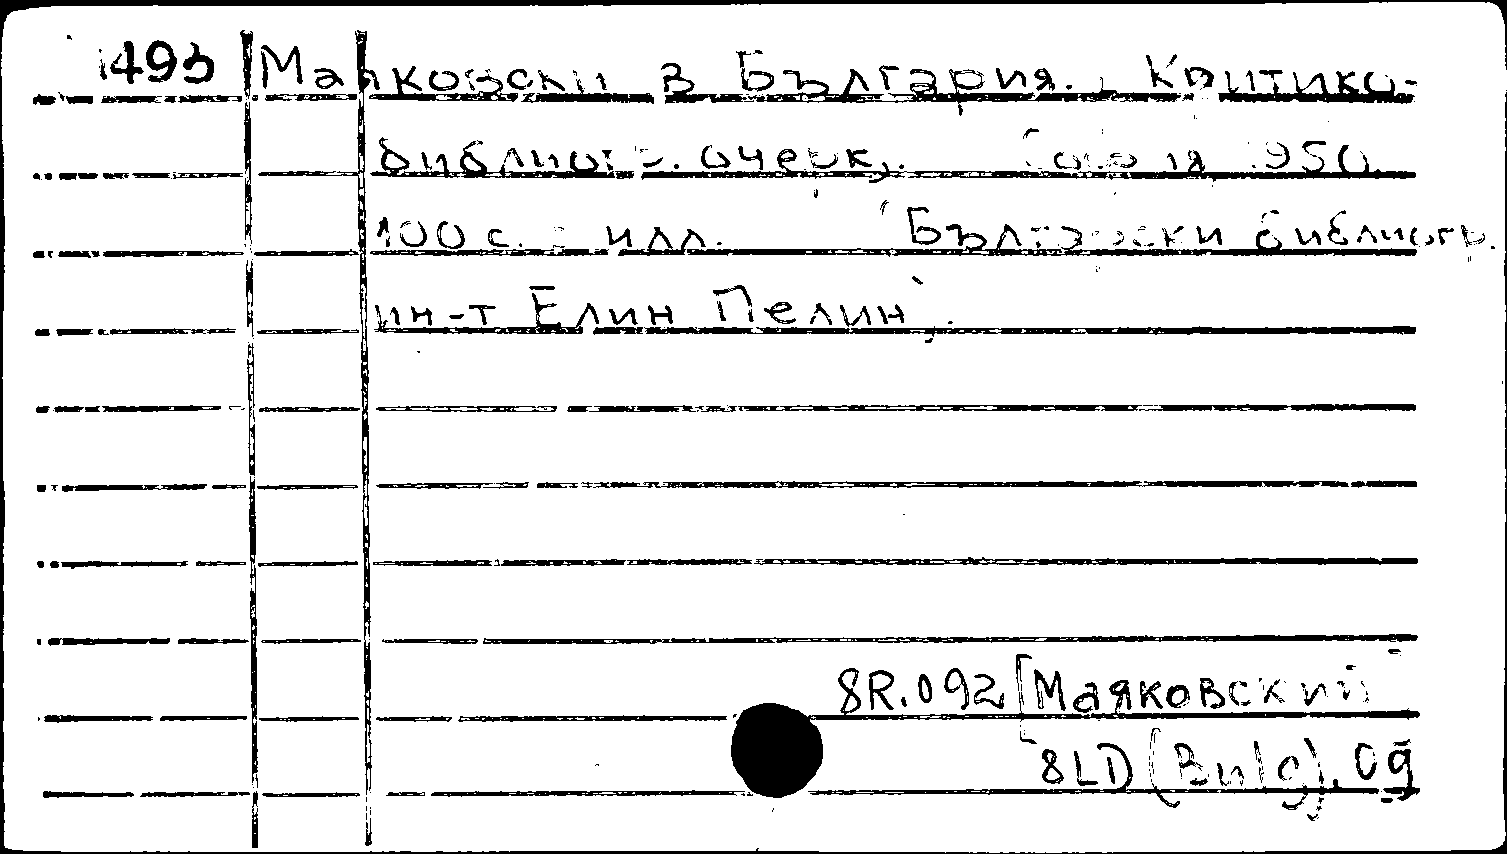 1493 Маяковски в България. Критико-
библиогр. очерк,. София 1950.
100 с. : илл. "Български библиогр.
ин-т Елин Пелин",.
8R.092[Маяковский
8LD(Bulg).09